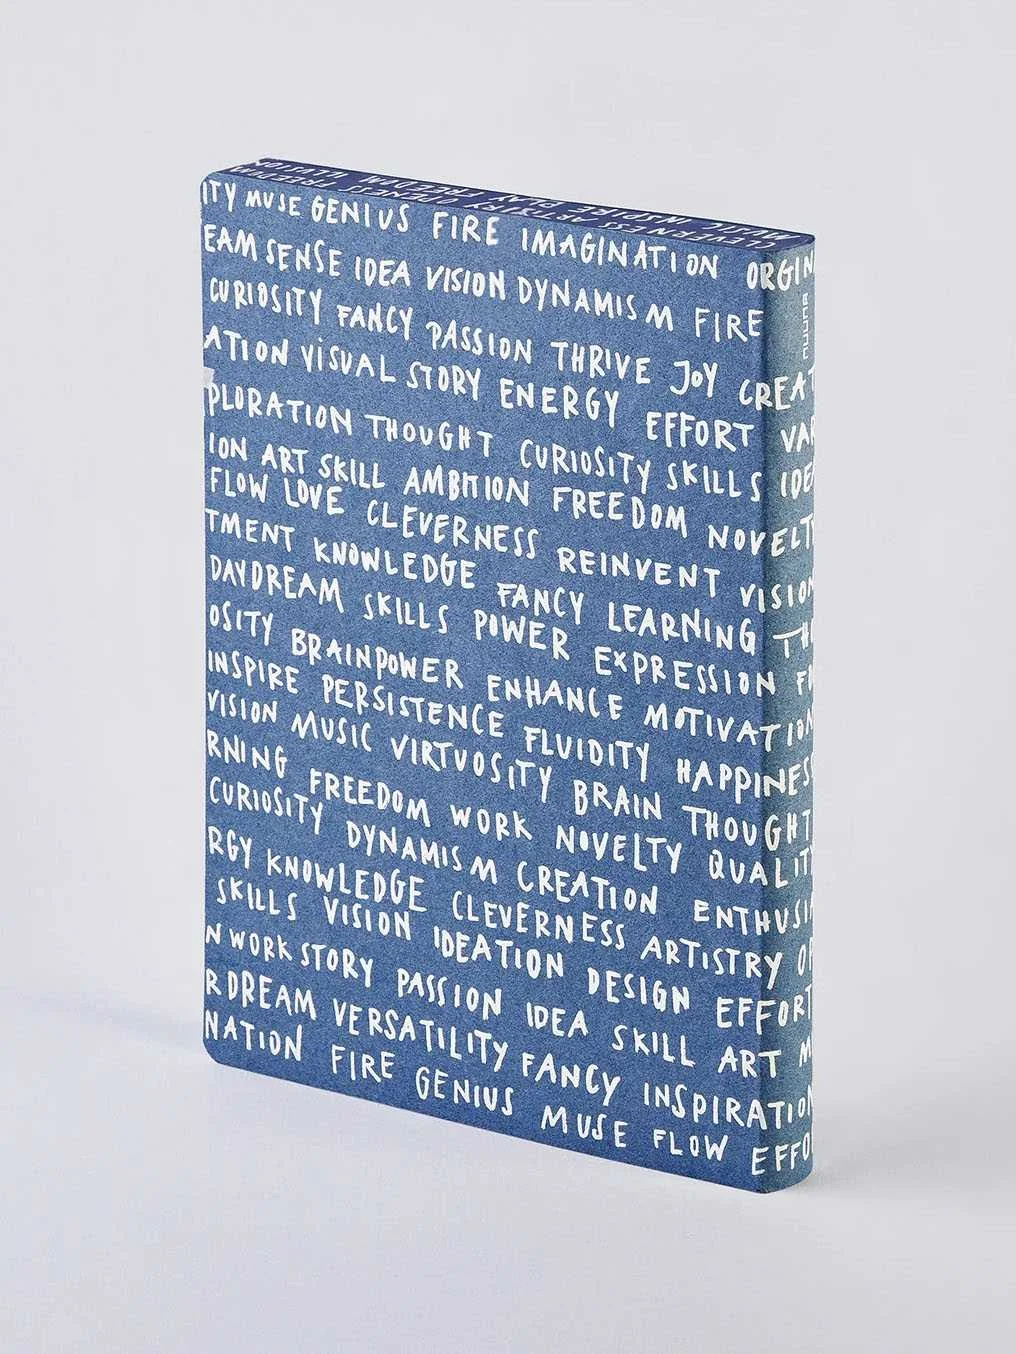 CLEVERNESS ARTISTRY OPENESS FREEDOM
MUSIC INSPIRE PLAY FREEDOM ILLUSION
ITY MUSE GENIUS FIRE IMAGINATION ORGIN
EAM SENSE IDEA VISION DYNAMISM FIRE
nuuna
CURIOSITY FANCY PASSION THRIVE JOY CREAT
ATION VISUAL STORY ENERGY EFFORT VAR
PLORATION THOUGHT CURIOSITY SKILLS IDEA
ION ART SKILL AMBITION FREEDOM NOVELTY
FLOW LOVE CLEVERNESS REINVENT VISION
TMENT KNOWLEDGE FANCY LEARNING TH
DAYDREAM SKILLS POWER EXPRESSION F
OSITY BRAINPOWER ENHANCE MOTIVATION
INSPIRE PERSISTENCE FLUIDITY HAPPINESS
VISION MUSIC VIRTUOSITY BRAIN THOUGHT
RNING FREEDOM WORK NOVELTY QUALITY
CURIOSITY DYNAMISM CREATION ENTHUSI
RGY KNOWLEDGE CLEVERNESS ARTISTRY OF
SKILLS VISION IDEATION DESIGN EFFORT
N WORK STORY PASSION IDEA SKILL ART M
R DREAM VERSATILITY FANCY INSPIRATION
NATION FIRE GENIUS MUSE FLOW EFFO